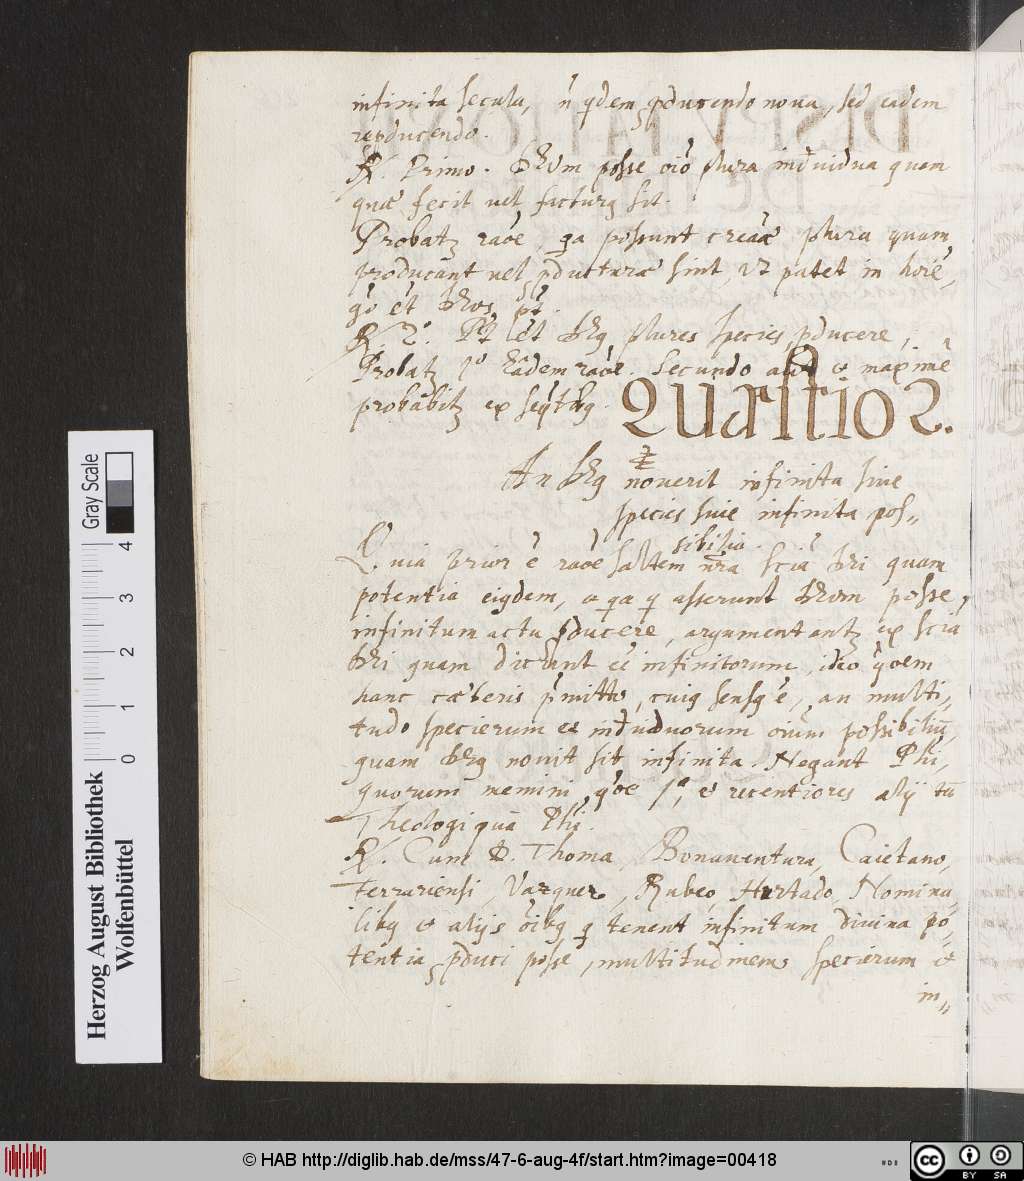 infinita secula, n̄ q̄dem p̱ducendo noua, sed eadem
rep̱ducendo.
R. Primo. posse plura indiuidua quam
quæ fecit uel facturꝯ sit.
Probatʒ raōe, qa possunt creāæ plura quam
producant uel p̄ducturæ sint, vt patet in hoīē,
gō et
R. 2.° et plures species p̱ducere,
Probatʒ 1° Eadem raōe. Secundo aūt et maximē
probabitʒ ex seq̄tibꝯ.
Quæstio 2.
An nouerit infinita siue
species siue infinita pos„
sibilia.
Quia prior ē raōe saltem n̄ra sciā quam
potentia eiꝯdem, a qa q̱ asserunt posse
infinitum actu p̱ducere, argumentantʒ ex sciā
quam dicunt eē infinitorum, ideo q̄oem
hanc cæteris p̄mitto, cuiꝯ sensꝯ ē, an multi,
tudo specierum et indiuiduorum oīum possibiliū,
quam nouit sit infinita. Negant Phi,
quorum memini q̄oe 1ª, et recentiores alij tā
Theologi quā Phi.
R. Cum D. Thoma, Bonauentura, Caietano,
Ferrariensi, Vazquez, Rubeo, Hurtado, Nomina,
libꝯ et alijs oībꝯ q̱ tenent infinitum diuina po,
tentia p̱duci posse, multitudinem specierum et
in„
Herzog August Bibliothek
Wolfenbüttel
0 1 2 3 4
Gray Scale
© HAB http://diglib.hab.de/mss/47-6-aug-4f/start.htm?image=00418
cc BY SA